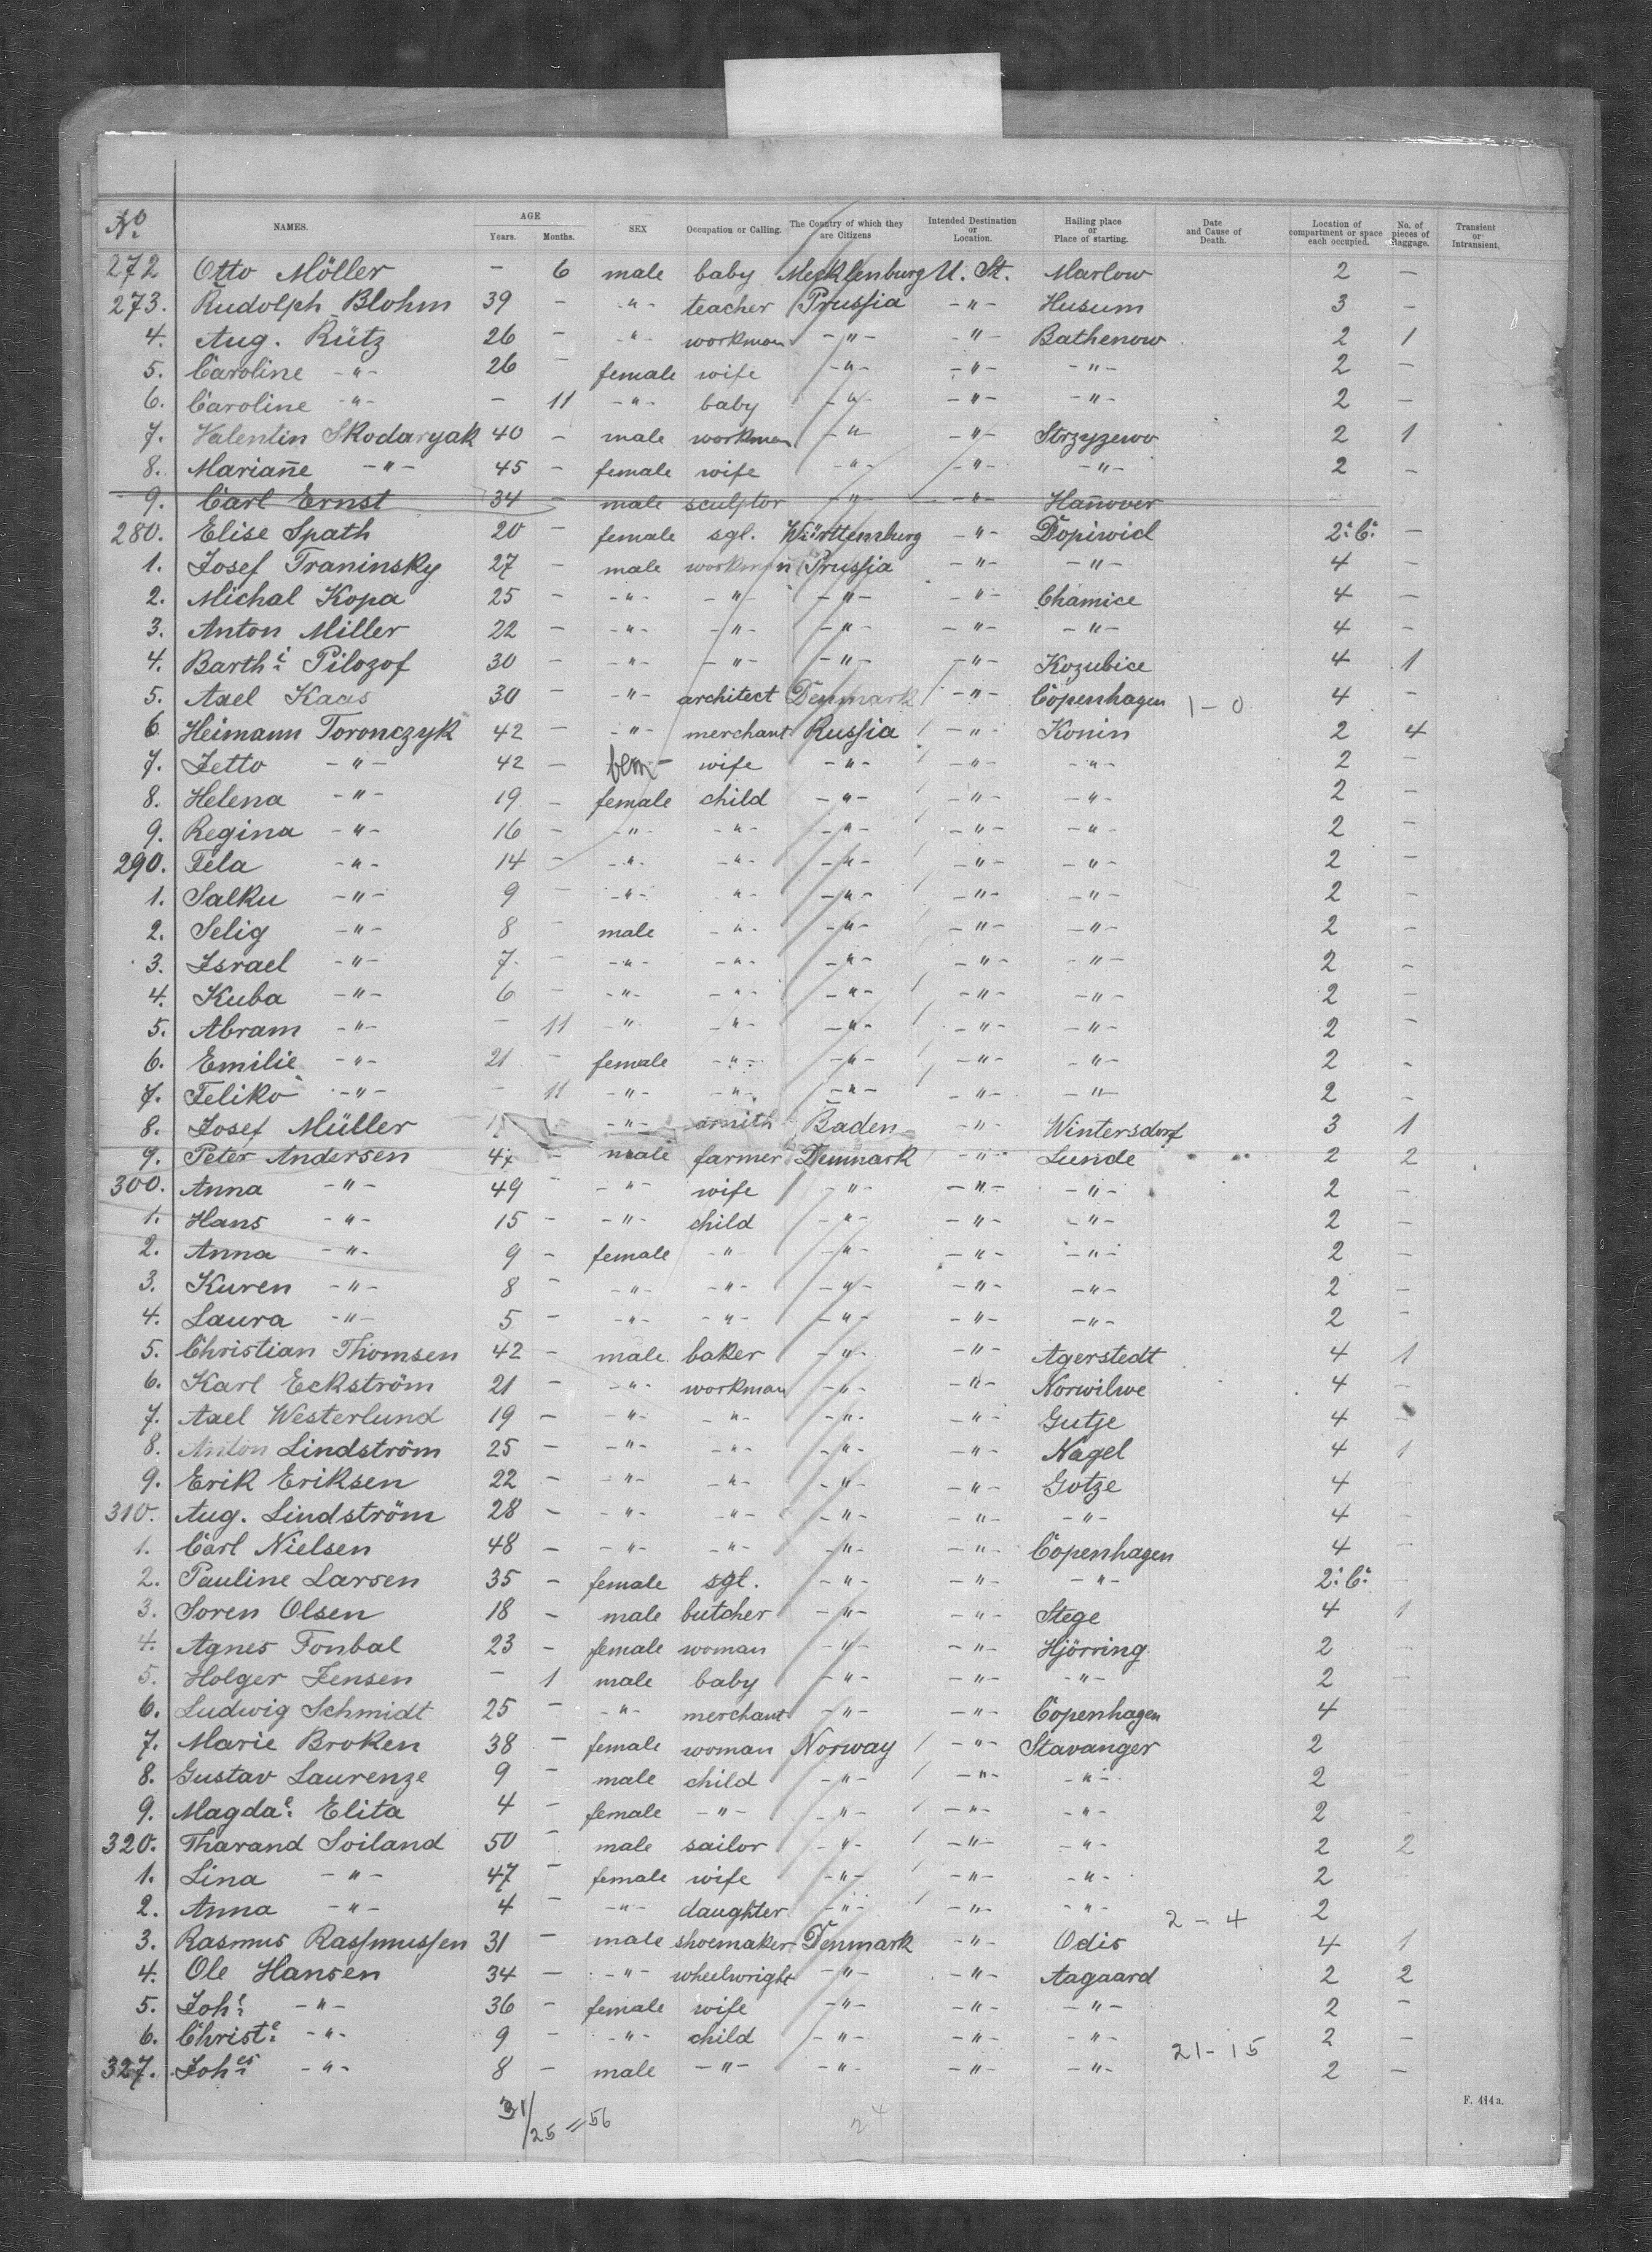 No. NAMES. AGE Years. Months. SEX Occupation or Calling. The Country of which they are Citizens Intended Destination or Location. Hailing place or Place of starting. Date and Cause of Death. Location of compartment or space each occupied. No. of pieces of Baggage. Transient or Intransient.
272 Otto Möller – 6 male baby Mecklenburg U. St. Marlow 2 –
273. Rudolph Blohm 39 – -"- teacher Prussia -"- Husum 3 –
4. Aug. Rütz 26 – -"- workman -"- -"- Bathenow 2 1
5. Caroline -"- 26 – female wife -"- -"- -"- 2 –
6. Caroline -"- – 11 -"- baby -"- -"- -"- 2 –
7. Valentin Skodaryak 40 – male workman -"- -"- Strzyzewo 2 1
8. Mariañe -"- 45 – female wife -"- -"- -"- 2 –
9. Carl Ernst 34 – male sculptor -"- -"- Hañover
280. Elise Spath 20 – female sgl. Württemburg -"- Dopiwid 2: C: –
1. Josef Traninsky 27 – male workman Prussia -"- -"- 4 –
2. Michal Kopa 25 – -"- -"- -"- -"- Chamice 4 –
3. Anton Miller 22 – -"- -"- -"- -"- -"- 4 –
4. Barth: Pilozof 30 – -"- -"- -"- -"- Kozubice 4 1
5. Axel Kaas 30 – -"- architect Denmark -"- Copenhagen 1-0 4 –
6 Heimann Toronczyk 42 – -"- merchant Russia -"- Konin 2 4
7. Jetto -"- 42 – fem wife -"- -"- -"- 2 –
8. Helena -"- 19 – female child -"- -"- -"- 2 –
9. Regina -"- 16 – -"- -"- -"- -"- -"- 2 –
290. Fela -"- 14 – -"- -"- -"- -"- -"- 2 –
1. Salku -"- 9 – -"- -"- -"- -"- -"- 2 –
2. Selig -"- 8 – male -"- -"- -"- -"- 2 –
3. Israel -"- 7 – -"- -"- -"- -"- -"- 2 –
4. Kuba -"- 6 – -"- -"- -"- -"- -"- 2 –
5. Abram -"- – 11 -"- -"- -"- -"- -"- 2 –
6. Emilie -"- 21 – female -"- -"- -"- -"- 2 –
7. Feliko -"- – 11 -"- -"- -"- -"- -"- 2 –
8. Josef Müller -"- smith Baden -"- Wintersdorf 3 1
9. Peter Andersen 47 – male farmer Denmark -"- Lunde 2 2
300. Anna -"- 49 – -"- wife -"- -"- -"- 2 –
1. Hans -"- 15 – -"- child -"- -"- -"- 2 –
2. Anna -"- 9 – female -"- -"- -"- -"- 2 –
3. Kuren -"- 8 – -"- -"- -"- -"- -"- 2 –
4. Laura -"- 5 – -"- -"- -"- -"- -"- 2 –
5. Christian Thomsen 42 – male baker -"- -"- Agerstedt 4 1
6. Karl Eckström 21 – -"- workman -"- -"- Norwilwe 4 –
7. Axel Westerlund 19 – -"- -"- -"- -"- Gutje 4 –
8. Anton Lindström 25 – -"- -"- -"- -"- Nagel 4 1
9. Erik Eriksen 22 – -"- -"- -"- -"- Gotze 4 –
310. Aug. Lindström 28 – -"- -"- -"- -"- -"- 4 –
1. Carl Nielsen 48 – -"- -"- -"- -"- Copenhagen 4 –
2. Pauline Larsen 35 – female sgl. -"- -"- -"- 2: C: –
3. Soren Olsen 18 – male butcher -"- -"- Stege 4 1
4. Agnes Fonbal 23 – female woman -"- -"- Hjörring 2 –
5. Holger Jensen – 1 male baby -"- -"- -"- 2 –
6. Ludwig Schmidt 25 – -"- merchant -"- -"- Copenhagen 4 –
7. Marie Broken 38 – female woman Norway -"- Stavanger 2 –
8. Gustav Laurenze 9 – male child -"- -"- -"- 2 –
9. Magdae: Elita 4 – female -"- -"- -"- -"- 2 –
320. Tharand Soiland 50 male sailor -"- -"- -"- 2 2
1. Lina -"- 47 – female wife -"- -"- -"- 2
2. Anna -"- 4 – -"- daughter -"- -"- -"- 2-4 2
3. Rasmus Rassmussen 31 – male shoemaker Denmark -"- Odis 4 1
4. Ole Hansen 34 – -"- wheelwright -"- -"- Aagaard 2 2
5. Joh: -"- 36 – female wife -"- -"- -"- 2 –
6. Christe: -"- 9 – -"- child -"- -"- -"- 2 –
327. Johes: -"- 8 – male -"- -"- -"- -"- 21-15 2 –
F. 414a.
31/25 = 56 24